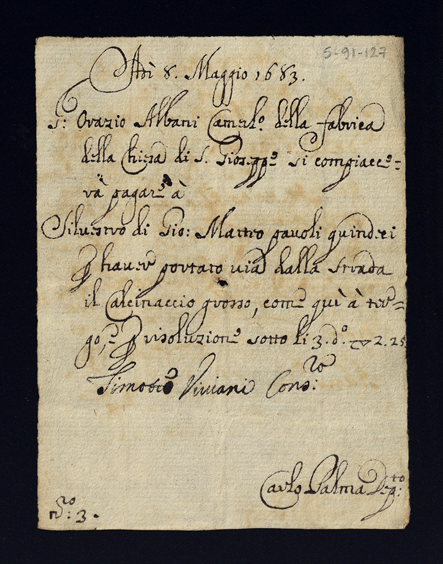 5-91-127
Adì 8. Maggio 1683.
Sr: Orazio Albani Camerlo. della fabrica
della Chiesa di S. Gioseppe si compiacce=
rà pagare à
Silvestro di Gio: Matteo pavoli quindeci
p haver portato via dalla strada
il Calcinaccio grosso, come quì à ter=
go, e p risoluzione sotto li 3. do. 2.25
Timoteo Viviani Conso:re
Carlo Palma Depto:
No: 3.